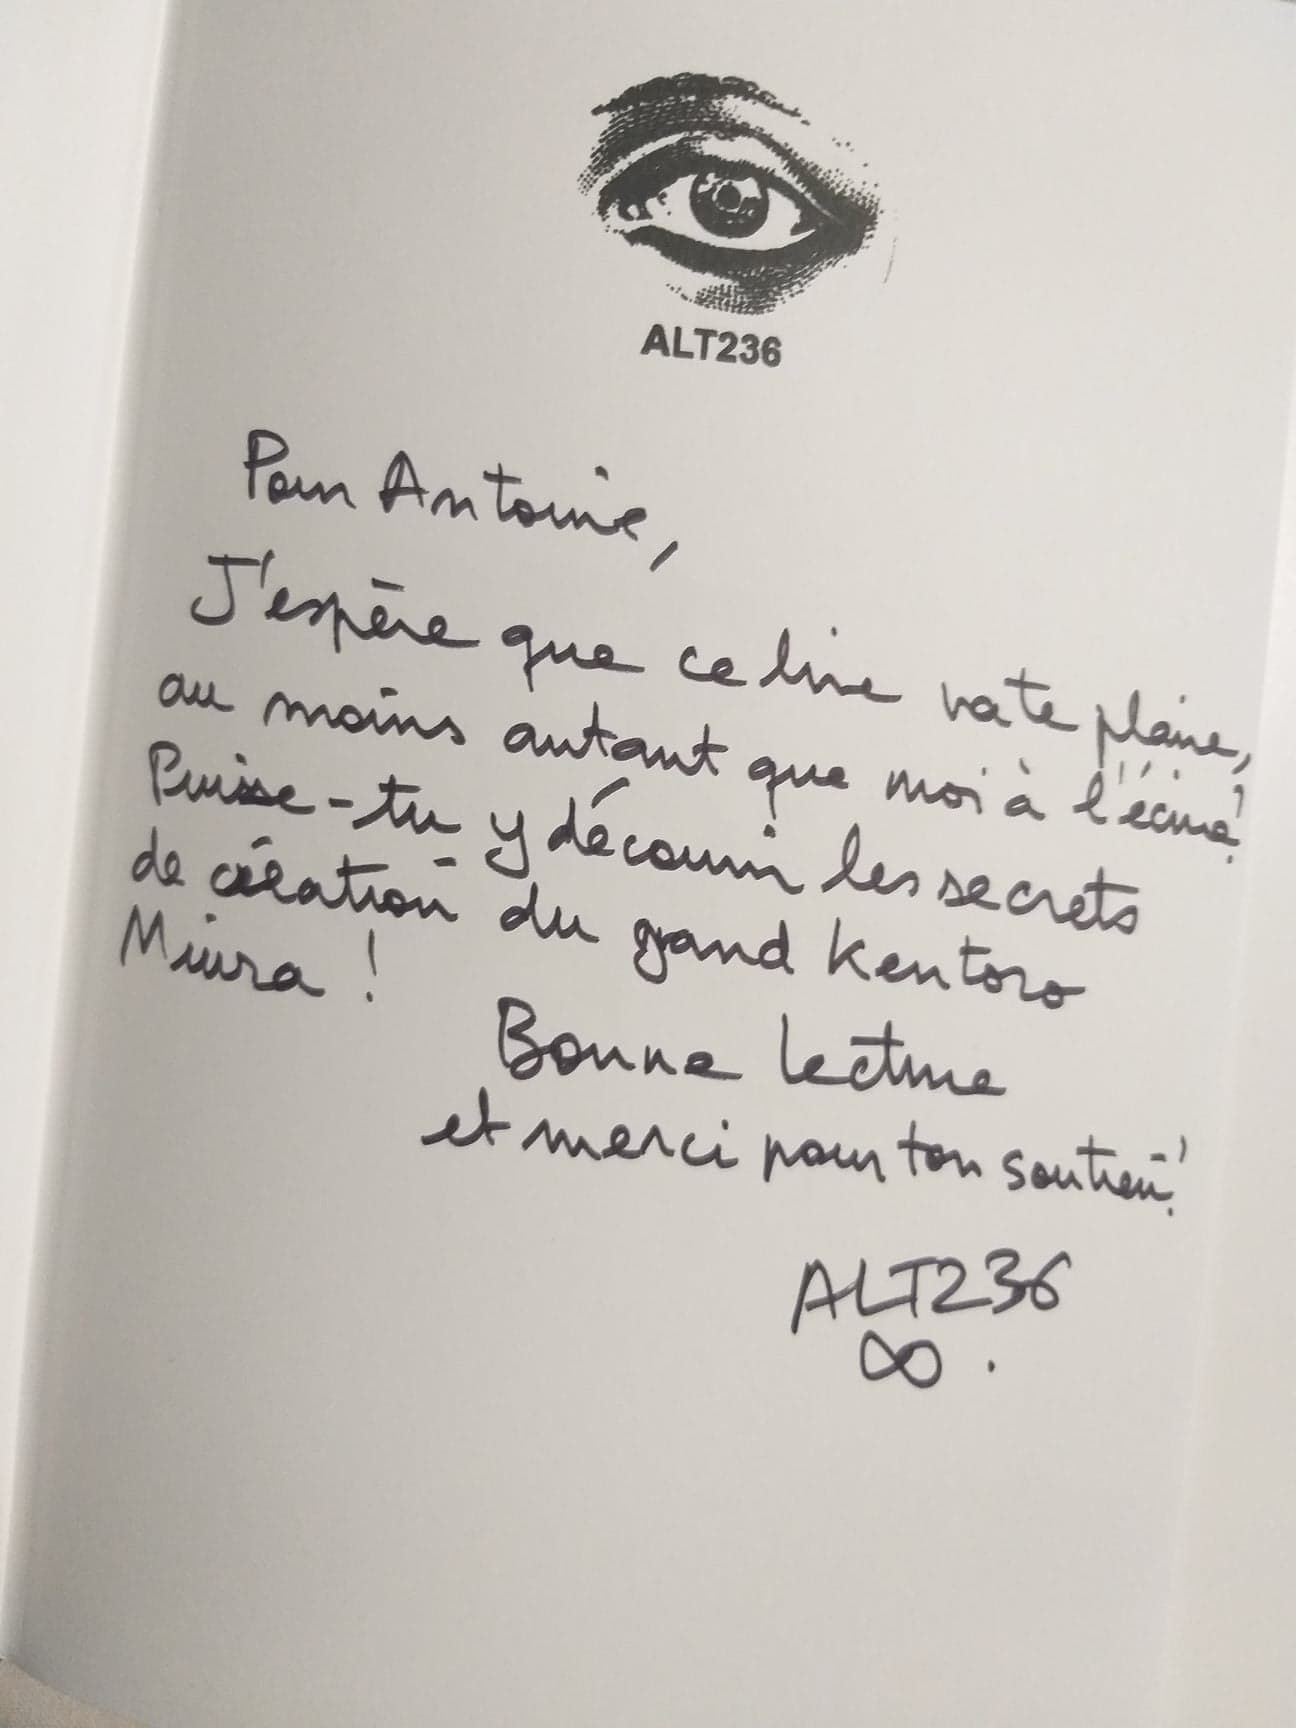 ALT236
Pour Antoine,
J'espère que ce livre va te plaire,
au moins autant que moi à l'écrire !
Puisse-tu y découvrir les secrets
de création du grand Kentoro
Miura !
Bonne lecture
et merci pour ton soutien !
ALT236
∞.